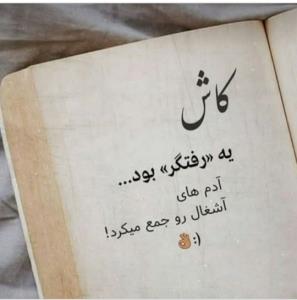 کاش
یه «رفتگر» بود...
آدم های
آشغال رو جمع میکرد!
👌🏼:)